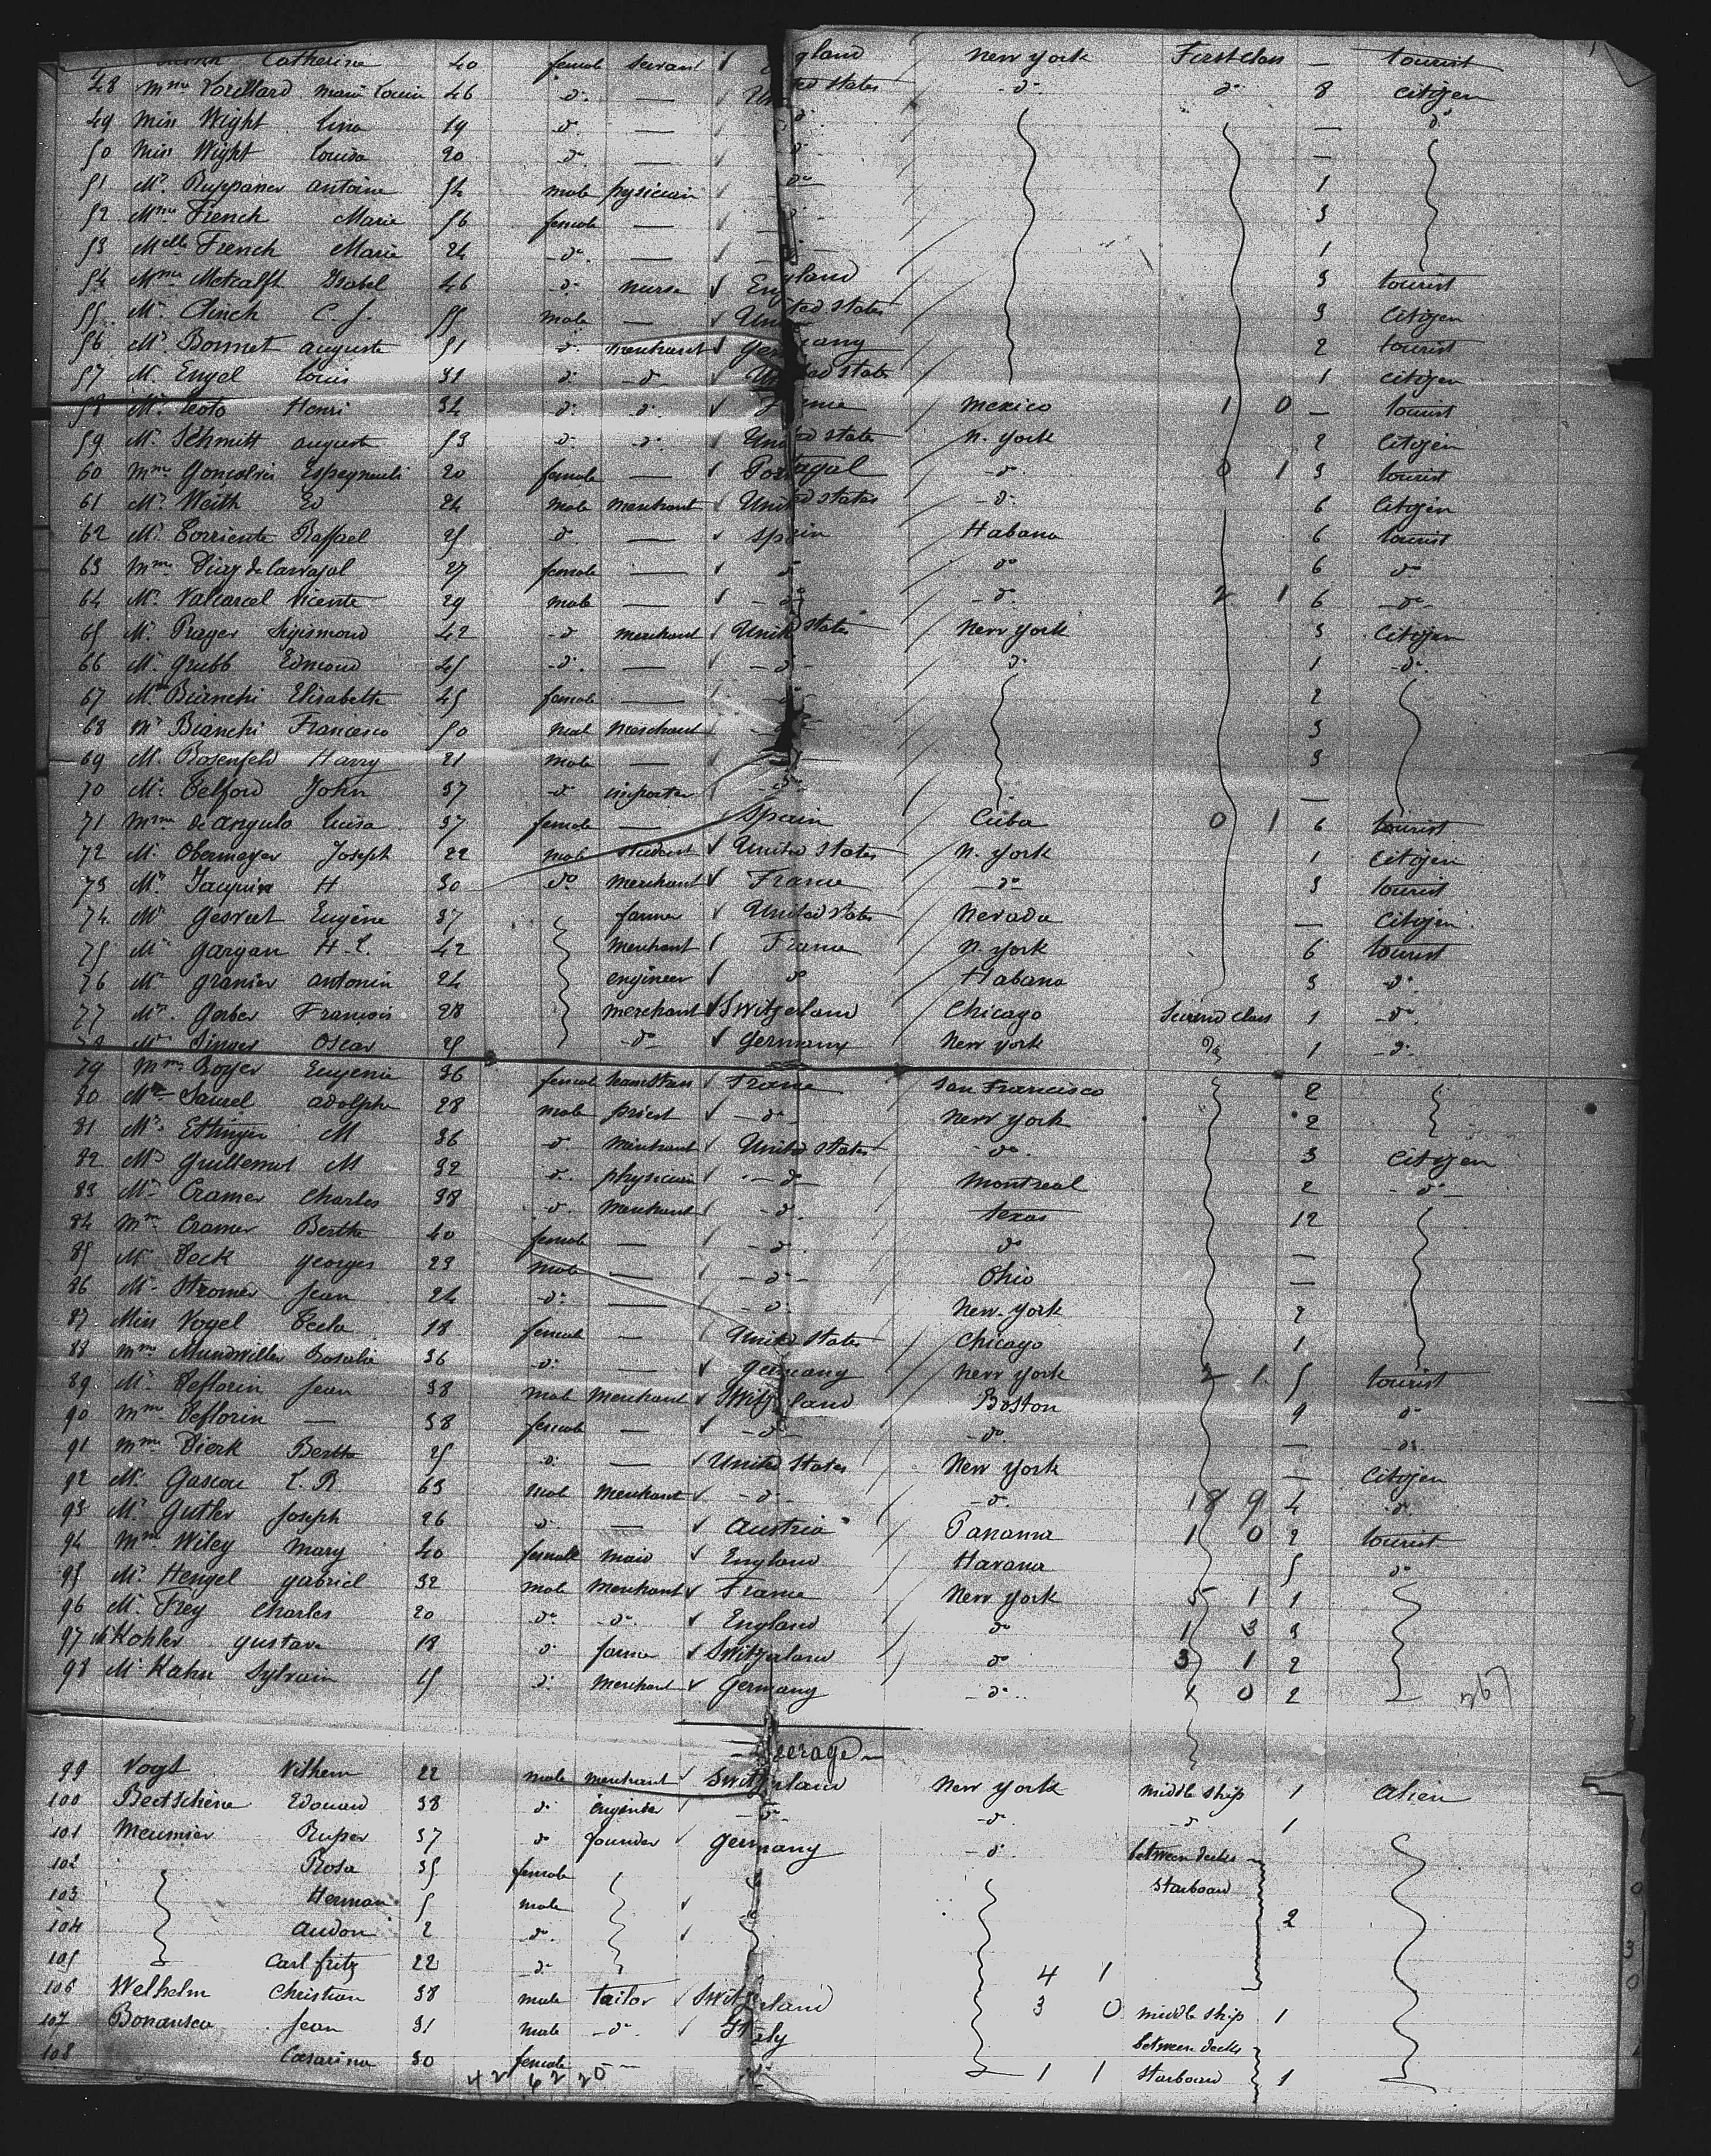 Catherine 40 female servant ✓ England New York First Class — tourist
48 Mme Lorillard Marie Louise 46 do — ✓ United States do do 8 Citizen
49 Miss Wight Lina 19 do — ✓ do — do
50 Miss Wight Louisa 20 do — ✓ do —
51 Mr. Ruppaner Antoine 54 male pysician ✓ do 1
52 Mme French Marie 56 female — ✓ do 3
53 Melle French Marie 24 do — ✓ do 1
54 Mme Metcalft Isabel 46 do nurse ✓ England 3 tourist
55 Mr. Clinch C. J. 55 male — ✓ United States 3 Citizen
56 Mr. Bonnet Auguste 51 do merchant ✓ Germany 2 tourist
57 M. Engel Louis 31 do do ✓ United States 1 Citizen
58 Mr. Henri 34 do do ✓ France Mexico 1 0 — tourist
59 Mr. Schmitt Auguste 53 do do ✓ United State N. York 2 Citizen
60 Mme Gonsalves 20 female — ✓ Portugal do 0 1 3 tourist
61 Mr. Weith Ed 24 male merchant ✓ United States do 6 Citizen
62 Mr. Torriente Raffael 25 do — ✓ Spain Habana 6 tourist
63 Mme Diaz de Carvajal 27 female — ✓ do do 6 do
64 Mr. Valcarcel Vicente 29 male — ✓ do do 2 1 6 do
65 Mr. Prager Sigismond 42 do merchant ✓ United States New York 3 Citizen
66 Mr. Grubb Edmond 45 do — ✓ do do 1 do
67 Mme Bianchi Elisabeth 45 female — do 2
68 Mr Bianchi Francesco 50 male merchant do 3
69 M. Rosenfeld Harry 21 male — ✓ do 3
70 Mr. Telford John 37 do importer do —
71 Mme de Angulo Luisa 37 female — ✓ Spain Cuba 0 1 6 tourist
72 Mr. Obermeyer Joseph 22 male student ✓ United States N. York 1 Citizen
73 Mr. Jacquin H 30 do merchant ✓ France do 3 tourist
74 Mr Eugène 37 farmer ✓ United States Nevada — Citizen
75 Mr Gargan H. L. 42 merchant ✓ France N. York 6 tourist
76 Mr Granier Antonin 24 engineer ✓ do Habana 3 do
77 Mr. Gerber François 28 merchant ✓ Switzerland Chicago Second Class 1 do
78 Mr Singer Oscar 25 do ✓ Germany New York do 1 do
79 Mme Boyer Eugenie 36 female ✓ France San Francisco 2
80 Mr Saurel Adolphe 28 male priest ✓ do New York 2
81 Mr. Ettinger M 36 do merchant ✓ United States do 3 Citizen
82 Mr Guillemot M 32 do physician ✓ do Montreal 2 do
83 Mr. Cramer Charles 38 do merchant ✓ do Texas 12
84 Mme Cramer Berthe 40 female — ✓ do do —
85 Mr Teck Georges 23 male — ✓ do Ohio —
86 Mr. Stromer Jean 24 do — ✓ do New York 2
87 Miss Vogel Tecla 18 female — ✓ United States Chicago 1
88 Mme Mundwiller Rosalie 36 do — ✓ Germany New York 2 1 5 tourist
89 Mr. Deflorin Jean 38 male Merchant ✓ Switzerland Boston 9 do
90 Mme Deflorin — 38 female — ✓ do do — do
91 Mme Dierk Bertha 25 do — ✓ United States New York — Citizen
92 Mr. Gascou L. R. 63 male Merchant ✓ do do 18 9 4 do
93 Mr Gutler Joseph 26 do — ✓ Austria Panama 1 0 2 tourist
94 Mme Wiley Mary 40 female maid ✓ England Havana 5 do
95 Mr. Hengel Gabriel 32 male Merchant ✓ France New York 5 1 1
96 Mr. Frey Charles 20 do do ✓ England do 1 3 3
97 M Kohler Gustave 18 do farmer ✓ Switzerland do 3 1 2
98 Mr Kahn Sylvain 15 do Merchant ✓ Germany do 1 0 2
Steerage
99 Vogt Vilhem 22 male merchant ✓ Switzerland New York middle ship 1 Alien
100 Bertschine Edouard 38 do engineer do do do 1
101 Meunier Ruper 37 do founder ✓ Germany do between decks
102 Rosa 35 female starboard
103 Herman 5 male ✓
104 Audon 2 do ✓ 2
105 Carl Fritz 22 do 4 1
106 Welhelm Christian 38 male tailor ✓ Switzerland 3 0 middle ship 1
107 Bonansea Jean 31 male do ✓ Italy between decks
108 Casarina 30 female — do 1 1 starboard 1
42 62 20